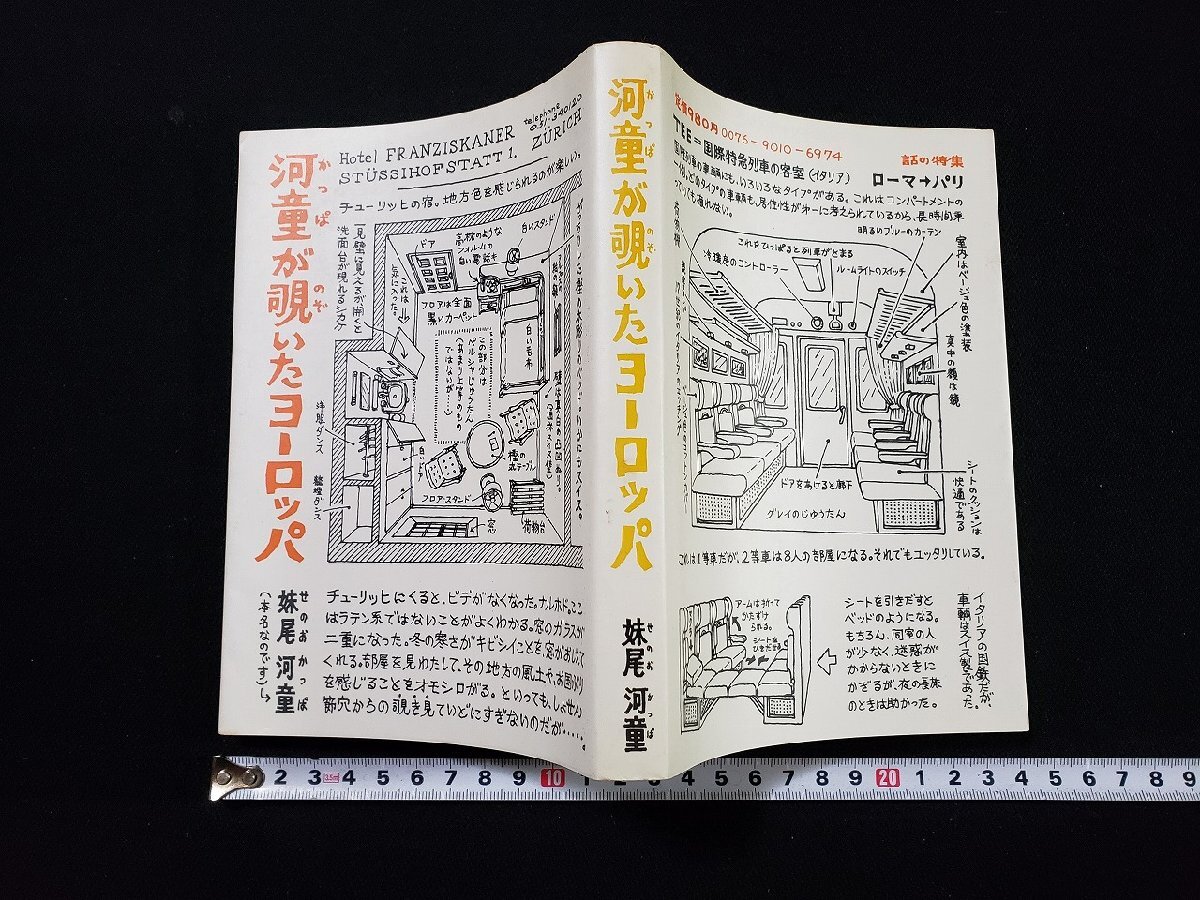 河童が覗いたヨーロッパ
かっぱ
のぞ
妹尾河童
せのおかっぱ
(本名なのです)
Hotel FRANZISKANER
telephone
STÜSSIHOFSTATT 1. ZÜRICH
チューリッヒの宿。地方色を感じられるのが楽しい。
一見壁に見えるが開くと
洗面台が現れるシカケ
これは
気に入った。
ドア
高杯のような
白い電話
白いスタンド
フロアは全面
黒いカーペット
白い毛布
この部分は
ペルシャじゅうたん
(あまり上等のもの
ではないが…)
洋服ダンス
整理ダンス
白い
ドア
フロア・スタンド
樫の
丸テーブル
窓
荷物台
チューリッヒにくると、ビデがなくなった。ナルホド。ここ
はラテン系ではないことがよくわかる。窓のガラスが
二重になった。冬の寒さがキビシイことを、窓がおしえて
くれる。部屋を見わたして、その地方の風土や、お国ぶり
を感じることをオモシロがる。といっても、しょせん
節穴からの覗き見ていどにすぎないのだが……。
河童が覗いたヨーロッパ
かっぱ
のぞ
妹尾河童
せのおかっぱ
定価980円 0075-9010-6974
話の特集
TEE=国際特急列車の客室(イタリア)
ローマ→パリ
国際列車の車輌にも、いろいろなタイプがある。これはコンパートメントの
っていても疲れない。
明るいブルーのカーテン
これをひっぱると列車がとまる
冷暖房のコントローラー
ルームライトのスイッチ
室内はベージュ色の塗装
真中の額は鏡
シートのクッションは
快適である
ドアをあけると廊下
グレイのじゅうたん
これは1等車だが、2等車は8人の部屋になる。それでもユッタリしている。
アームは手前で
かたずけ
られる。
シートを
ひきだす
シートを引きだすと
ベッドのようになる。
もちろん、同室の人
が少なく、迷惑が
かからないときに
かぎるが、夜の長旅
のときは助かった。
イタリアの国鉄だが、
車輌はスイス製であった。
2 3 3.5m 4 5 6 7 8 9 10 1 2 3 4 5 6 7 8 9 20 1 2 3 4 5 6 7 8 9